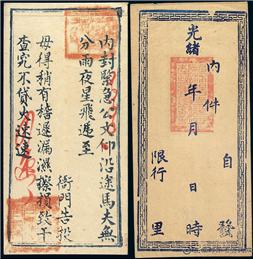 內封緊急公文仰沿途馬夫無
分雨夜星飛遞至
衙門告投
毋得稍有稽遲漏濕擦損致干
查究不貸火速速
光緒
年月日時
內件
自發
限行里